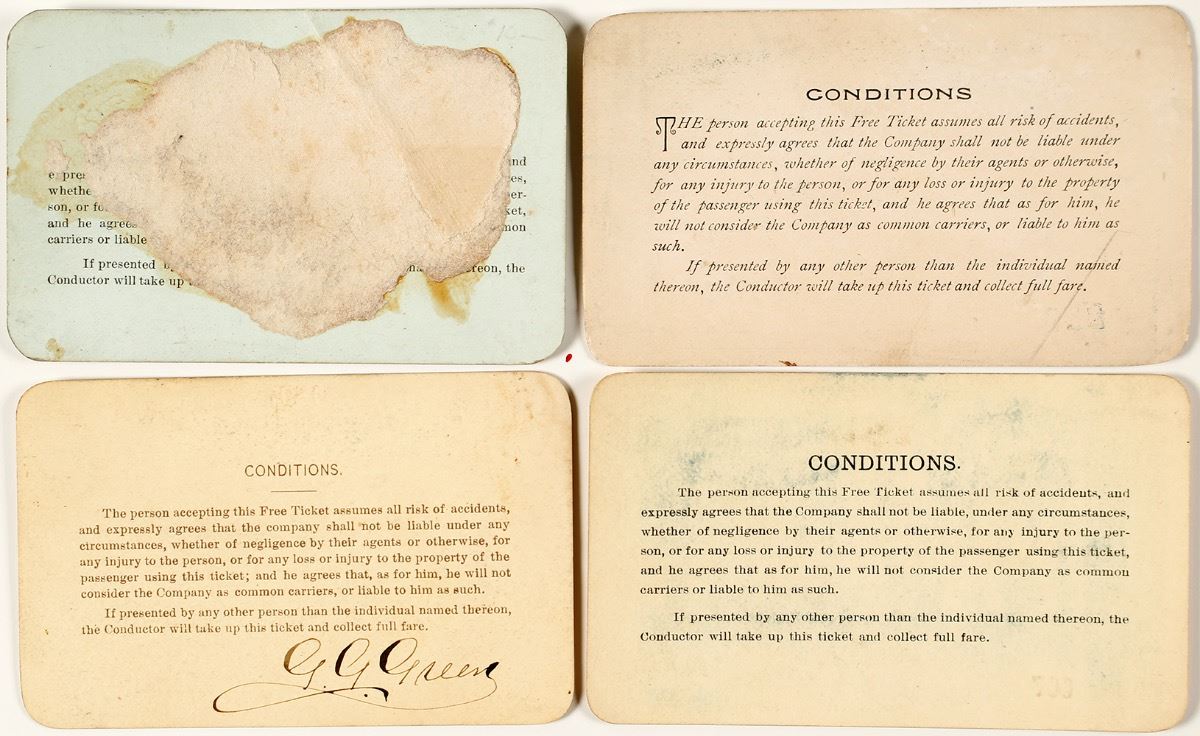 and
expres
es,
whethe
per-
son, or fo
ket,
and he agrees
mon
carriers or liable
If presented by
thereon, the
Conductor will take up
CONDITIONS
THE person accepting this Free Ticket assumes all risk of accidents,
and expressly agrees that the Company shall not be liable under
any circumstances, whether of negligence by their agents or otherwise,
for any injury to the person, or for any loss or injury to the property
of the passenger using this ticket, and he agrees that as for him, he
will not consider the Company as common carriers, or liable to him as
such.
If presented by any other person than the individual named
thereon, the Conductor will take up this ticket and collect full fare.
CONDITIONS.
The person accepting this Free Ticket assumes all risk of accidents,
and expressly agrees that the company shall not be liable under any
circumstances, whether of negligence by their agents or otherwise, for
any injury to the person, or for any loss or injury to the property of the
passenger using this ticket; and he agrees that, as for him, he will not
consider the Company as common carriers, or liable to him as such.
If presented by any other person than the individual named thereon,
the Conductor will take up this ticket and collect full fare.
G. G. Green
CONDITIONS.
The person accepting this Free Ticket assumes all risk of accidents, and
expressly agrees that the Company shall not be liable, under any circumstances,
whether of negligence by their agents or otherwise, for any injury to the per-
son, or for any loss or injury to the property of the passenger using this ticket,
and he agrees that as for him, he will not consider the Company as common
carriers or liable to him as such.
If presented by any other person than the individual named thereon, the
Conductor will take up this ticket and collect full fare.